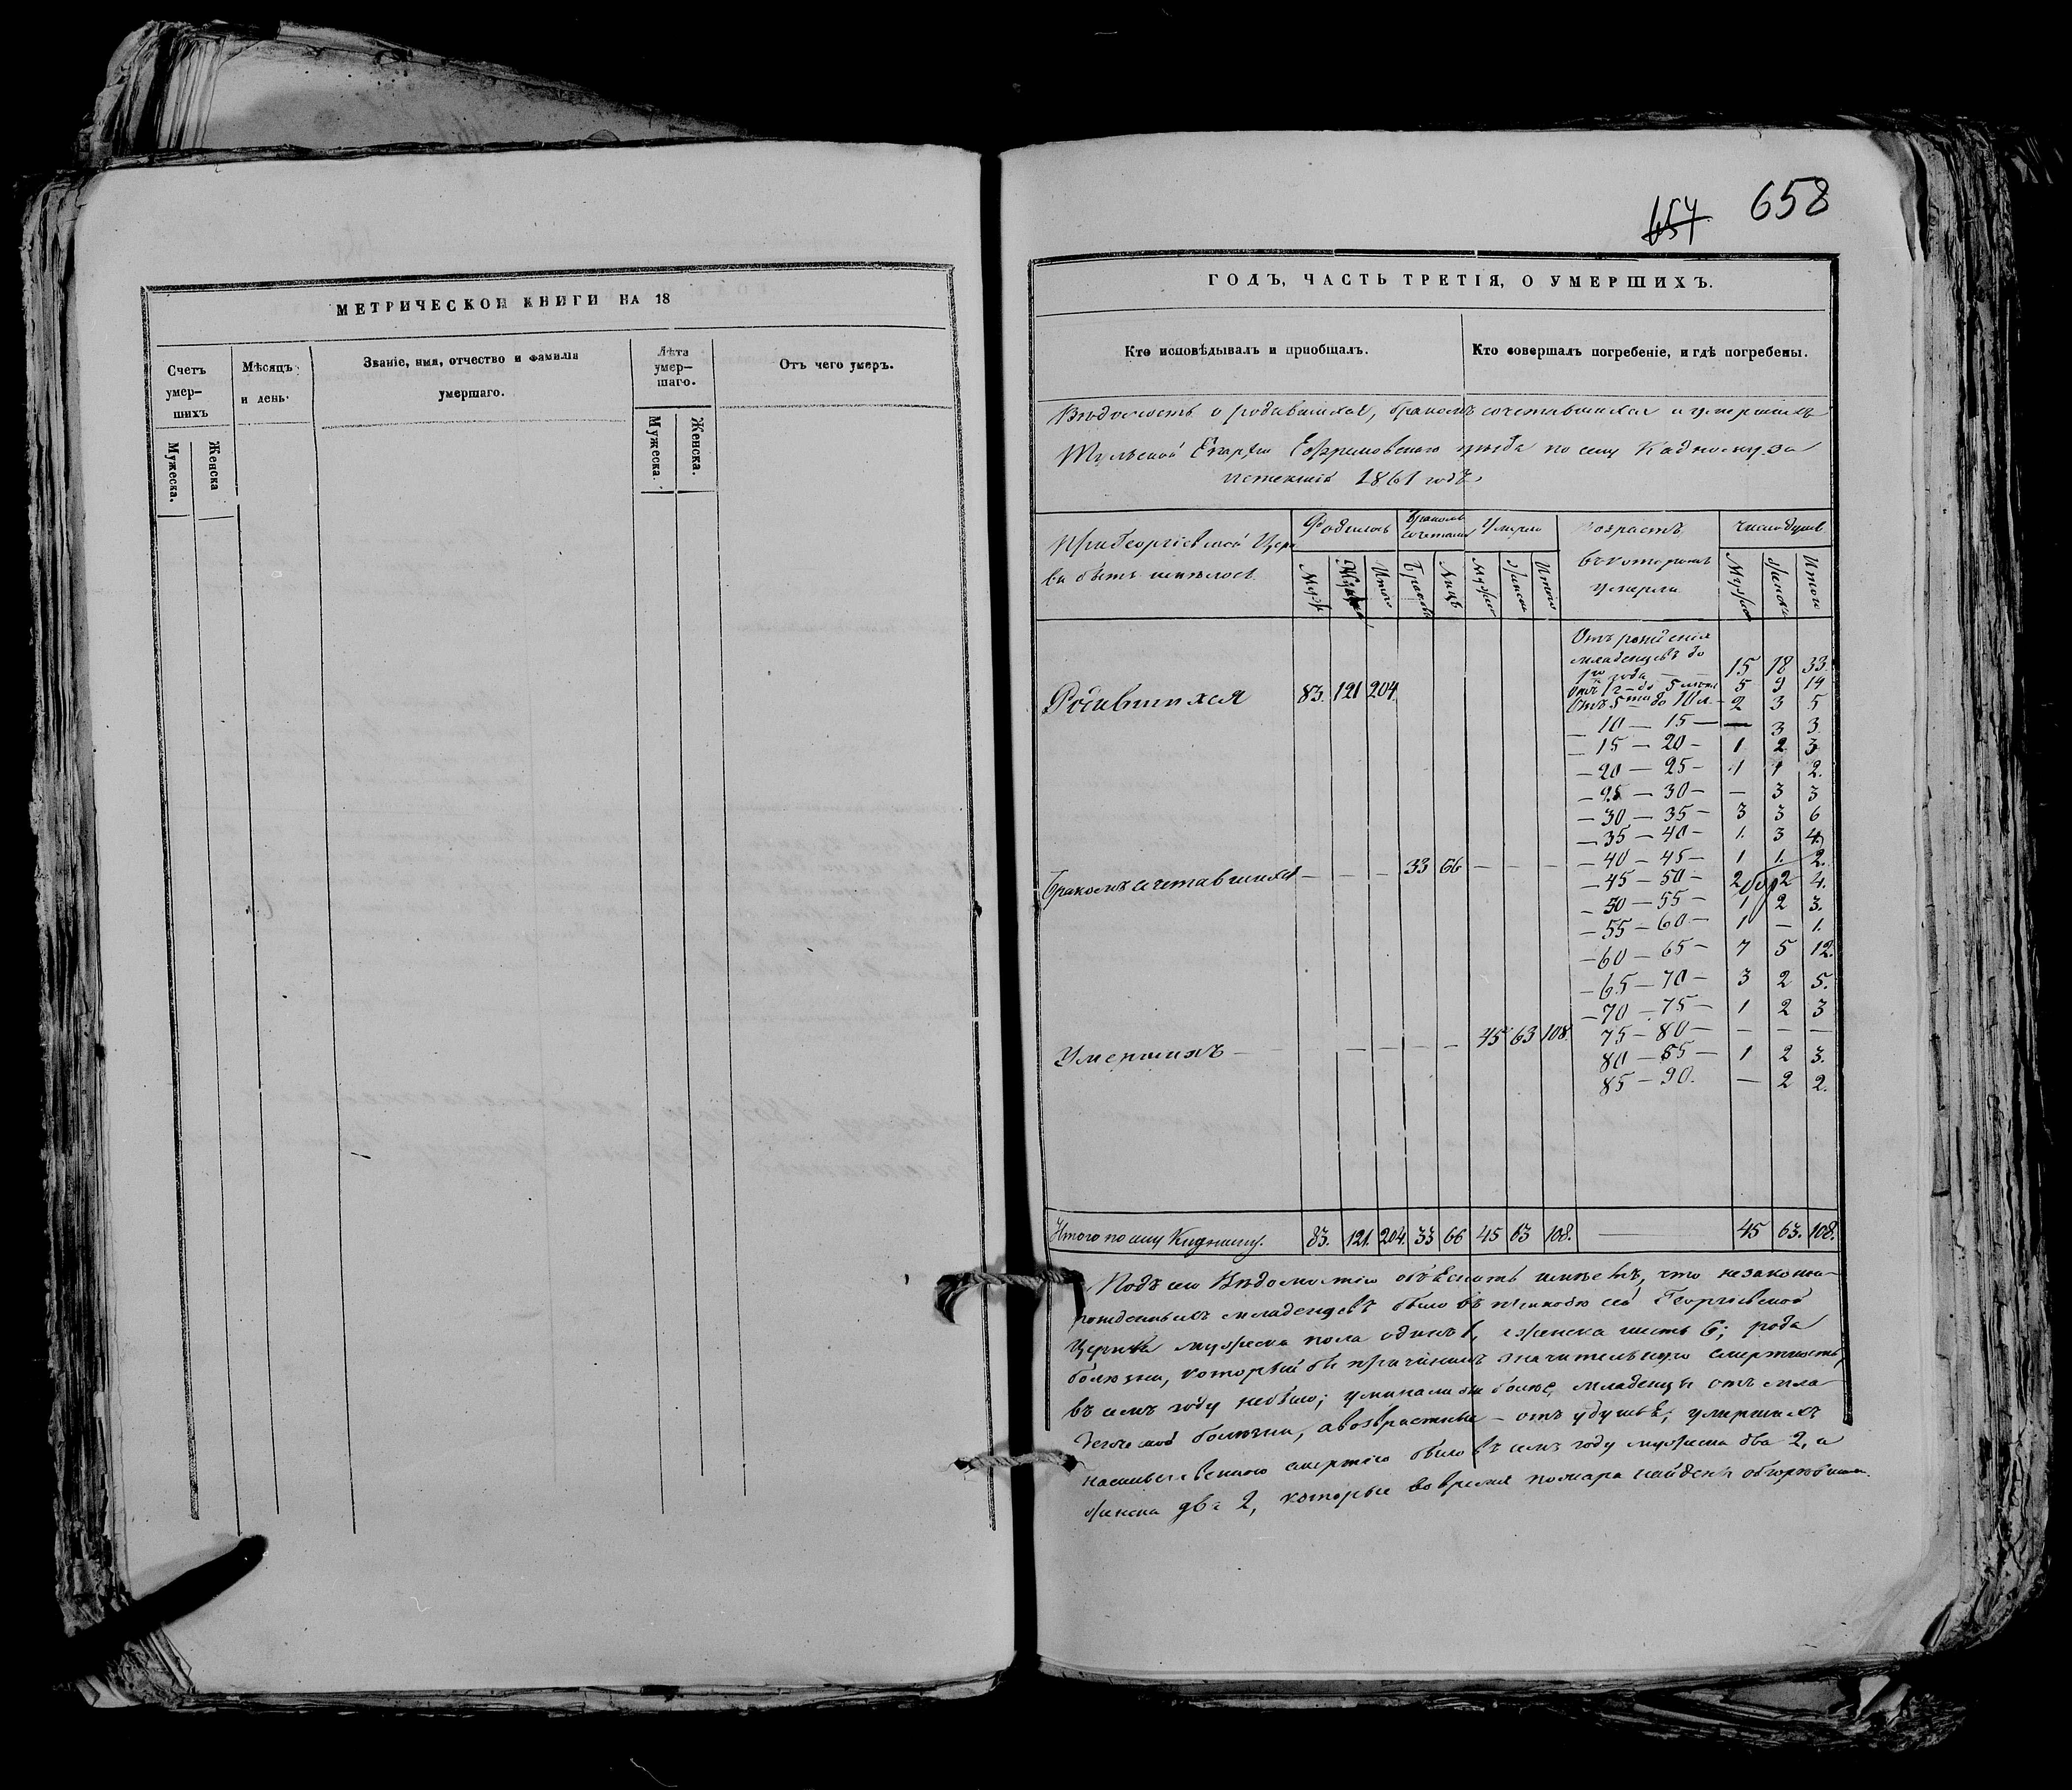 МЕТРИЧЕСКОЙ КНИГИ НА 18
Счетъ умер- шихъ
Мѣсяцъ и день.
Званіе, имя, отчество и фамилія умершаго.
Лѣта умер- шаго.
Отъ чего умеръ.
Мужеска.
Женска
Мужеска.
Женска.
654 658
ГОДЪ, ЧАСТЬ ТРЕТІЯ, О УМЕРШИХЪ.
Кто исповѣдывалъ и пріобщалъ.
Кто совершалъ погребеніе, и гдѣ погребены.
Вѣдомость о родившихся, бракомъ сочетавшихся и умершихъ
Тульской Епархіи Ефремовскаго уѣзда по селу Кадному за
истекшій 1861 годъ.
При Георгіевской Церк
ви бытъ имѣлось
Родилось
Бракомъ сочетались
Умерло
Возрастъ, въ которомъ умерли
Число душъ
Муж. Женска Итого Браковъ Лицъ Мужеска Женска Итого Мужеска Женска Итого
Родившихся 83. 121 204.
Бракомъ сочетавшихся — — — 33 66 — — —
Умершихъ — — — — — 45 63 108.
Отъ рожденія
младенцевъ до
1го года — 15 18 33.
Отъ 1г - до 5 лѣтъ 5 9 14
Отъ 5ти до 10 л. - 2 3 5
— 10 — 15 — — 3 3.
— 15 — 20 — 1 2 3
— 20 — 25 — 1 1 2.
— 25 — 30 — — 3 3
— 30 — 35 — 3 3 6
— 35 — 40 — 1. 3 4.
— 40 — 45 — 1 1. 2.
— 45 — 50 — 2 2 4.
— 50 — 55 — 1 2 3.
— 55 — 60 — 1 — 1.
— 60 — 65 — 7 5 12.
— 65 — 70 — 3 2 5.
— 70 — 75 — 1 2 3
75 — 80 — — — —
80 — 85 — 1 2 3.
85 — 90. — 2 2.
Итого по селу Кадному. 83. 121. 204. 33 66 45 63 108. — 45 63. 108.
Подъ сею Вѣдомостію объяснить имѣемъ, что незаконно-
рожденныхъ младенцевъ было въ приходѣ сей Георгіевской
Церкви мужеска пола одинъ 1, женска шесть 6; рода
болѣзни, который бы причинилъ значительную смертность,
въ семъ году небыло; умирали болѣе младенцы отъ мла-
денческой болѣзни, а возрастные - отъ удушья; умершихъ
насильственною смертію было въ семъ году мужеска два 2, и
женска два 2, которые во время пожара найдены обгорѣвшими.